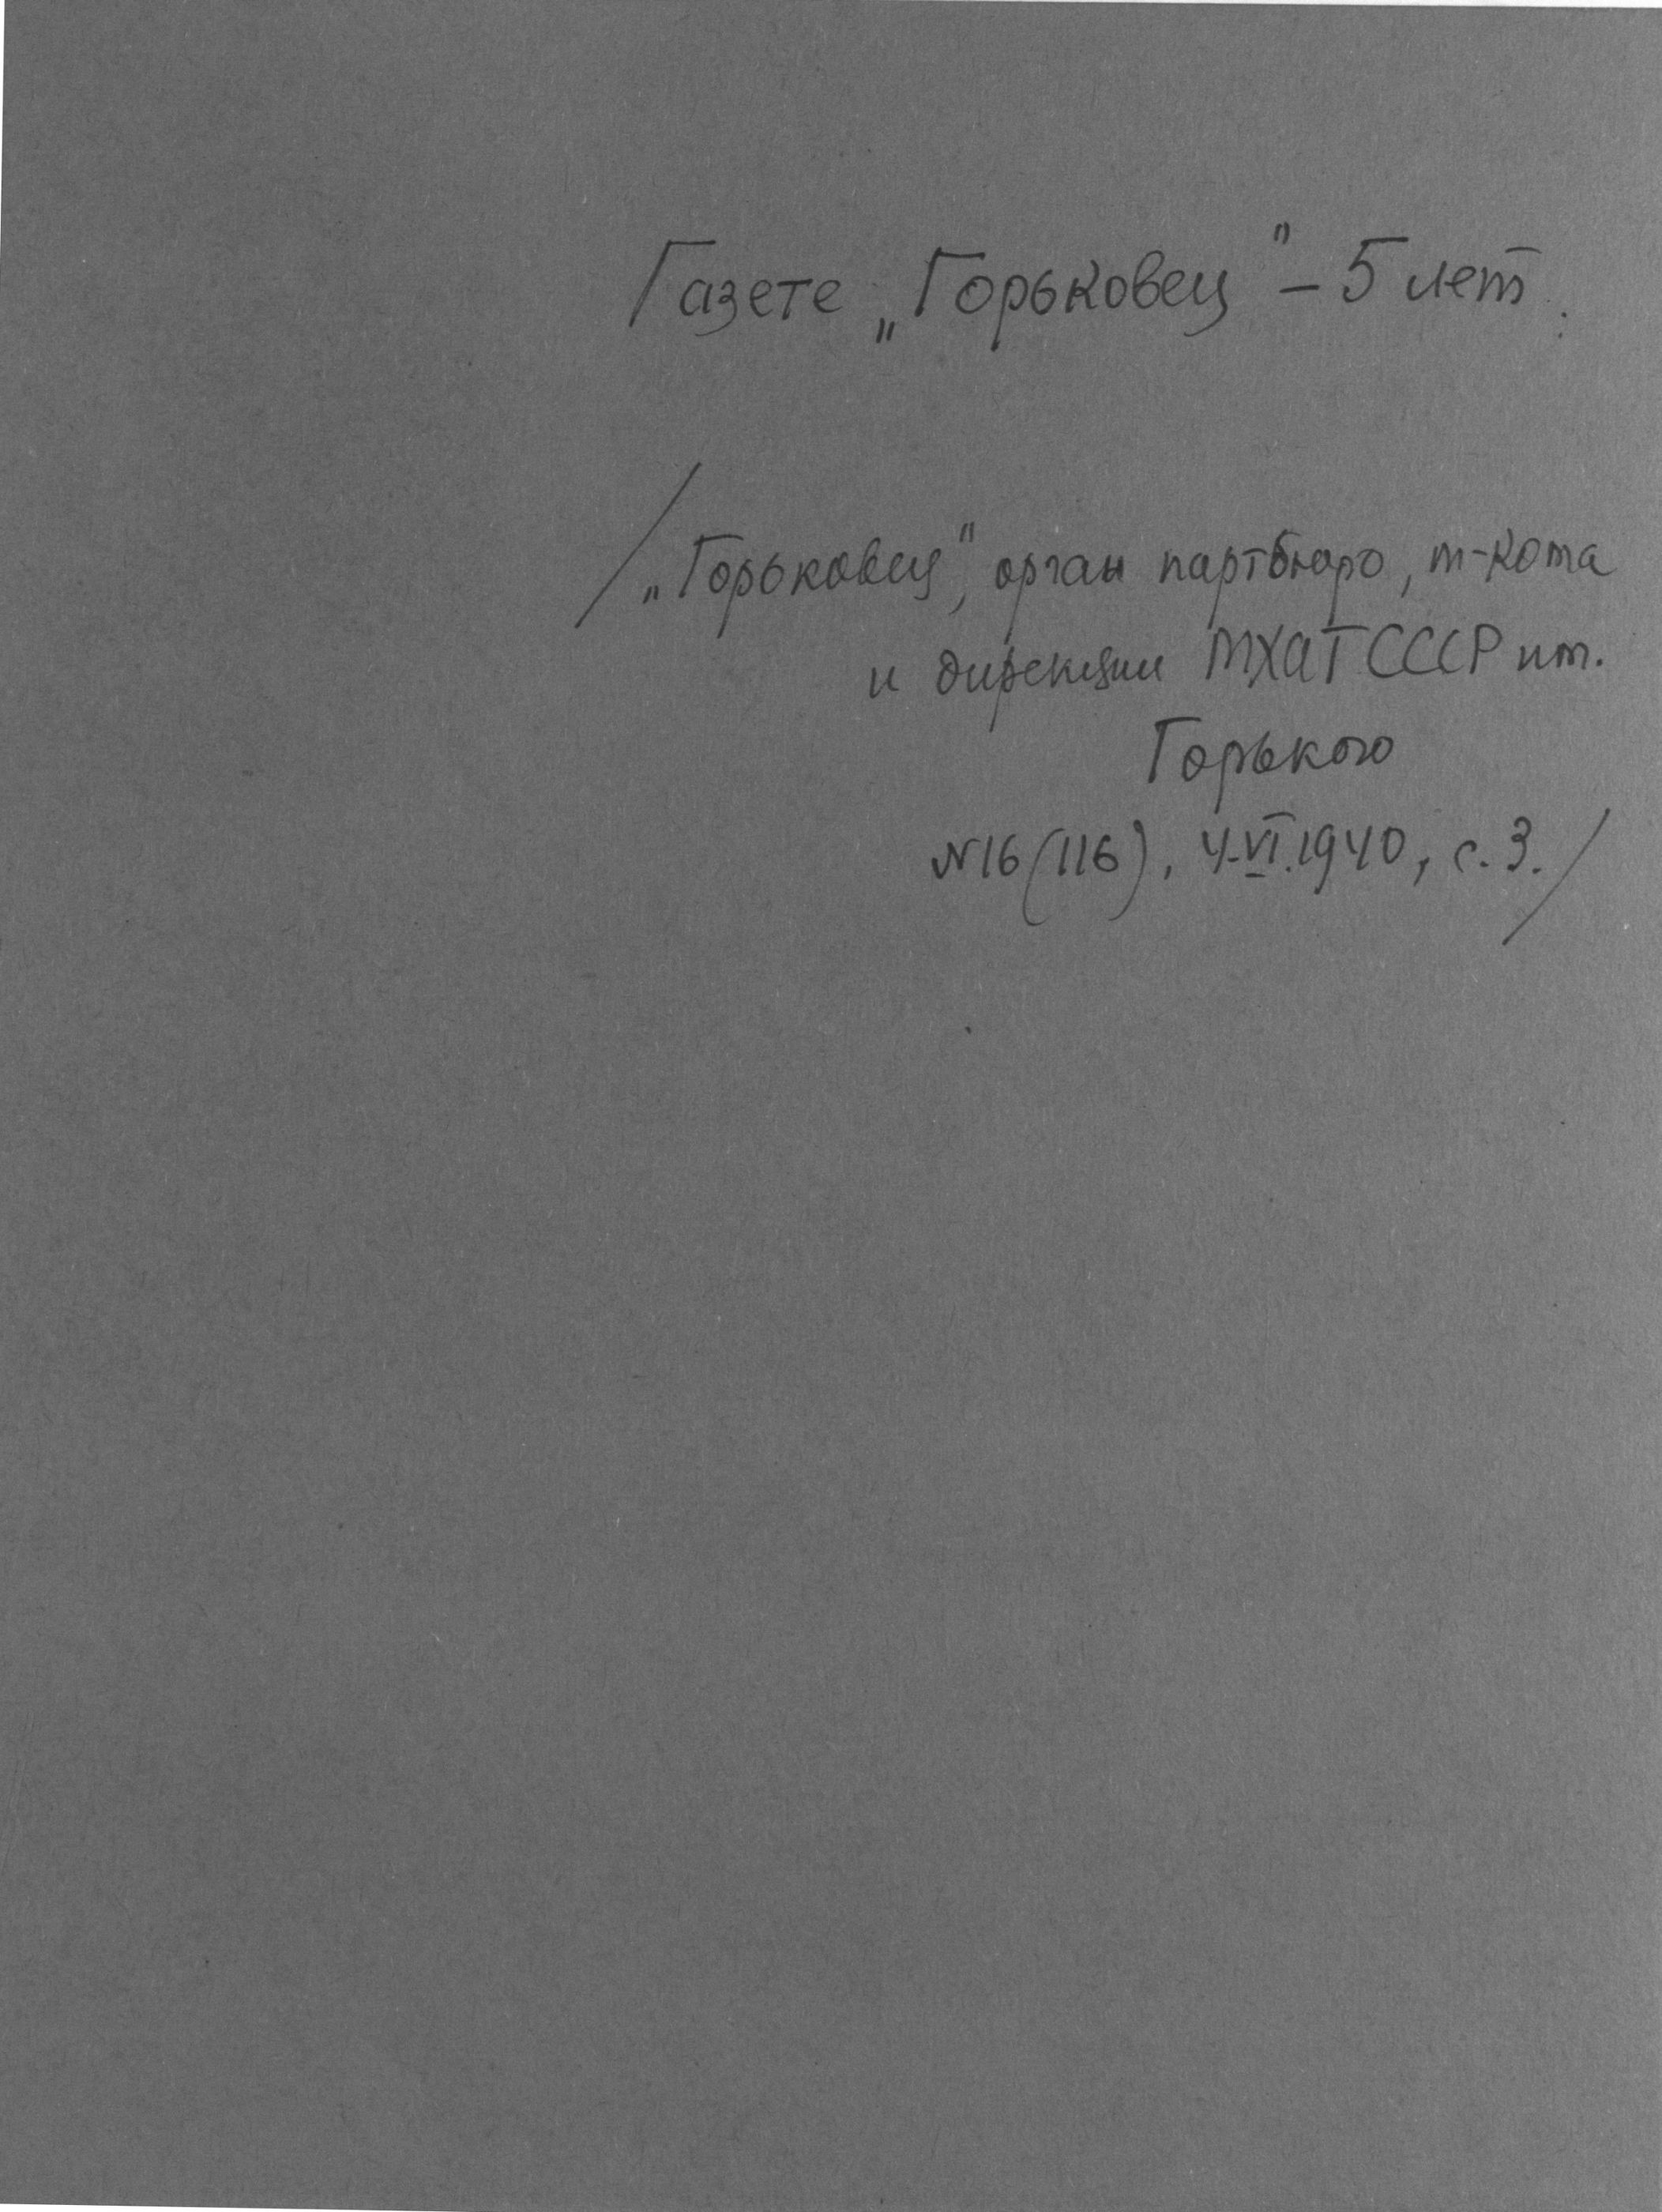 Газете „Горьковец" – 5 лет.
/„Горьковец", орган партбюро, м-кома
и дирекции МХАТ СССР им.
Горького
N16 (116), 4.VI.1940, с. 3./